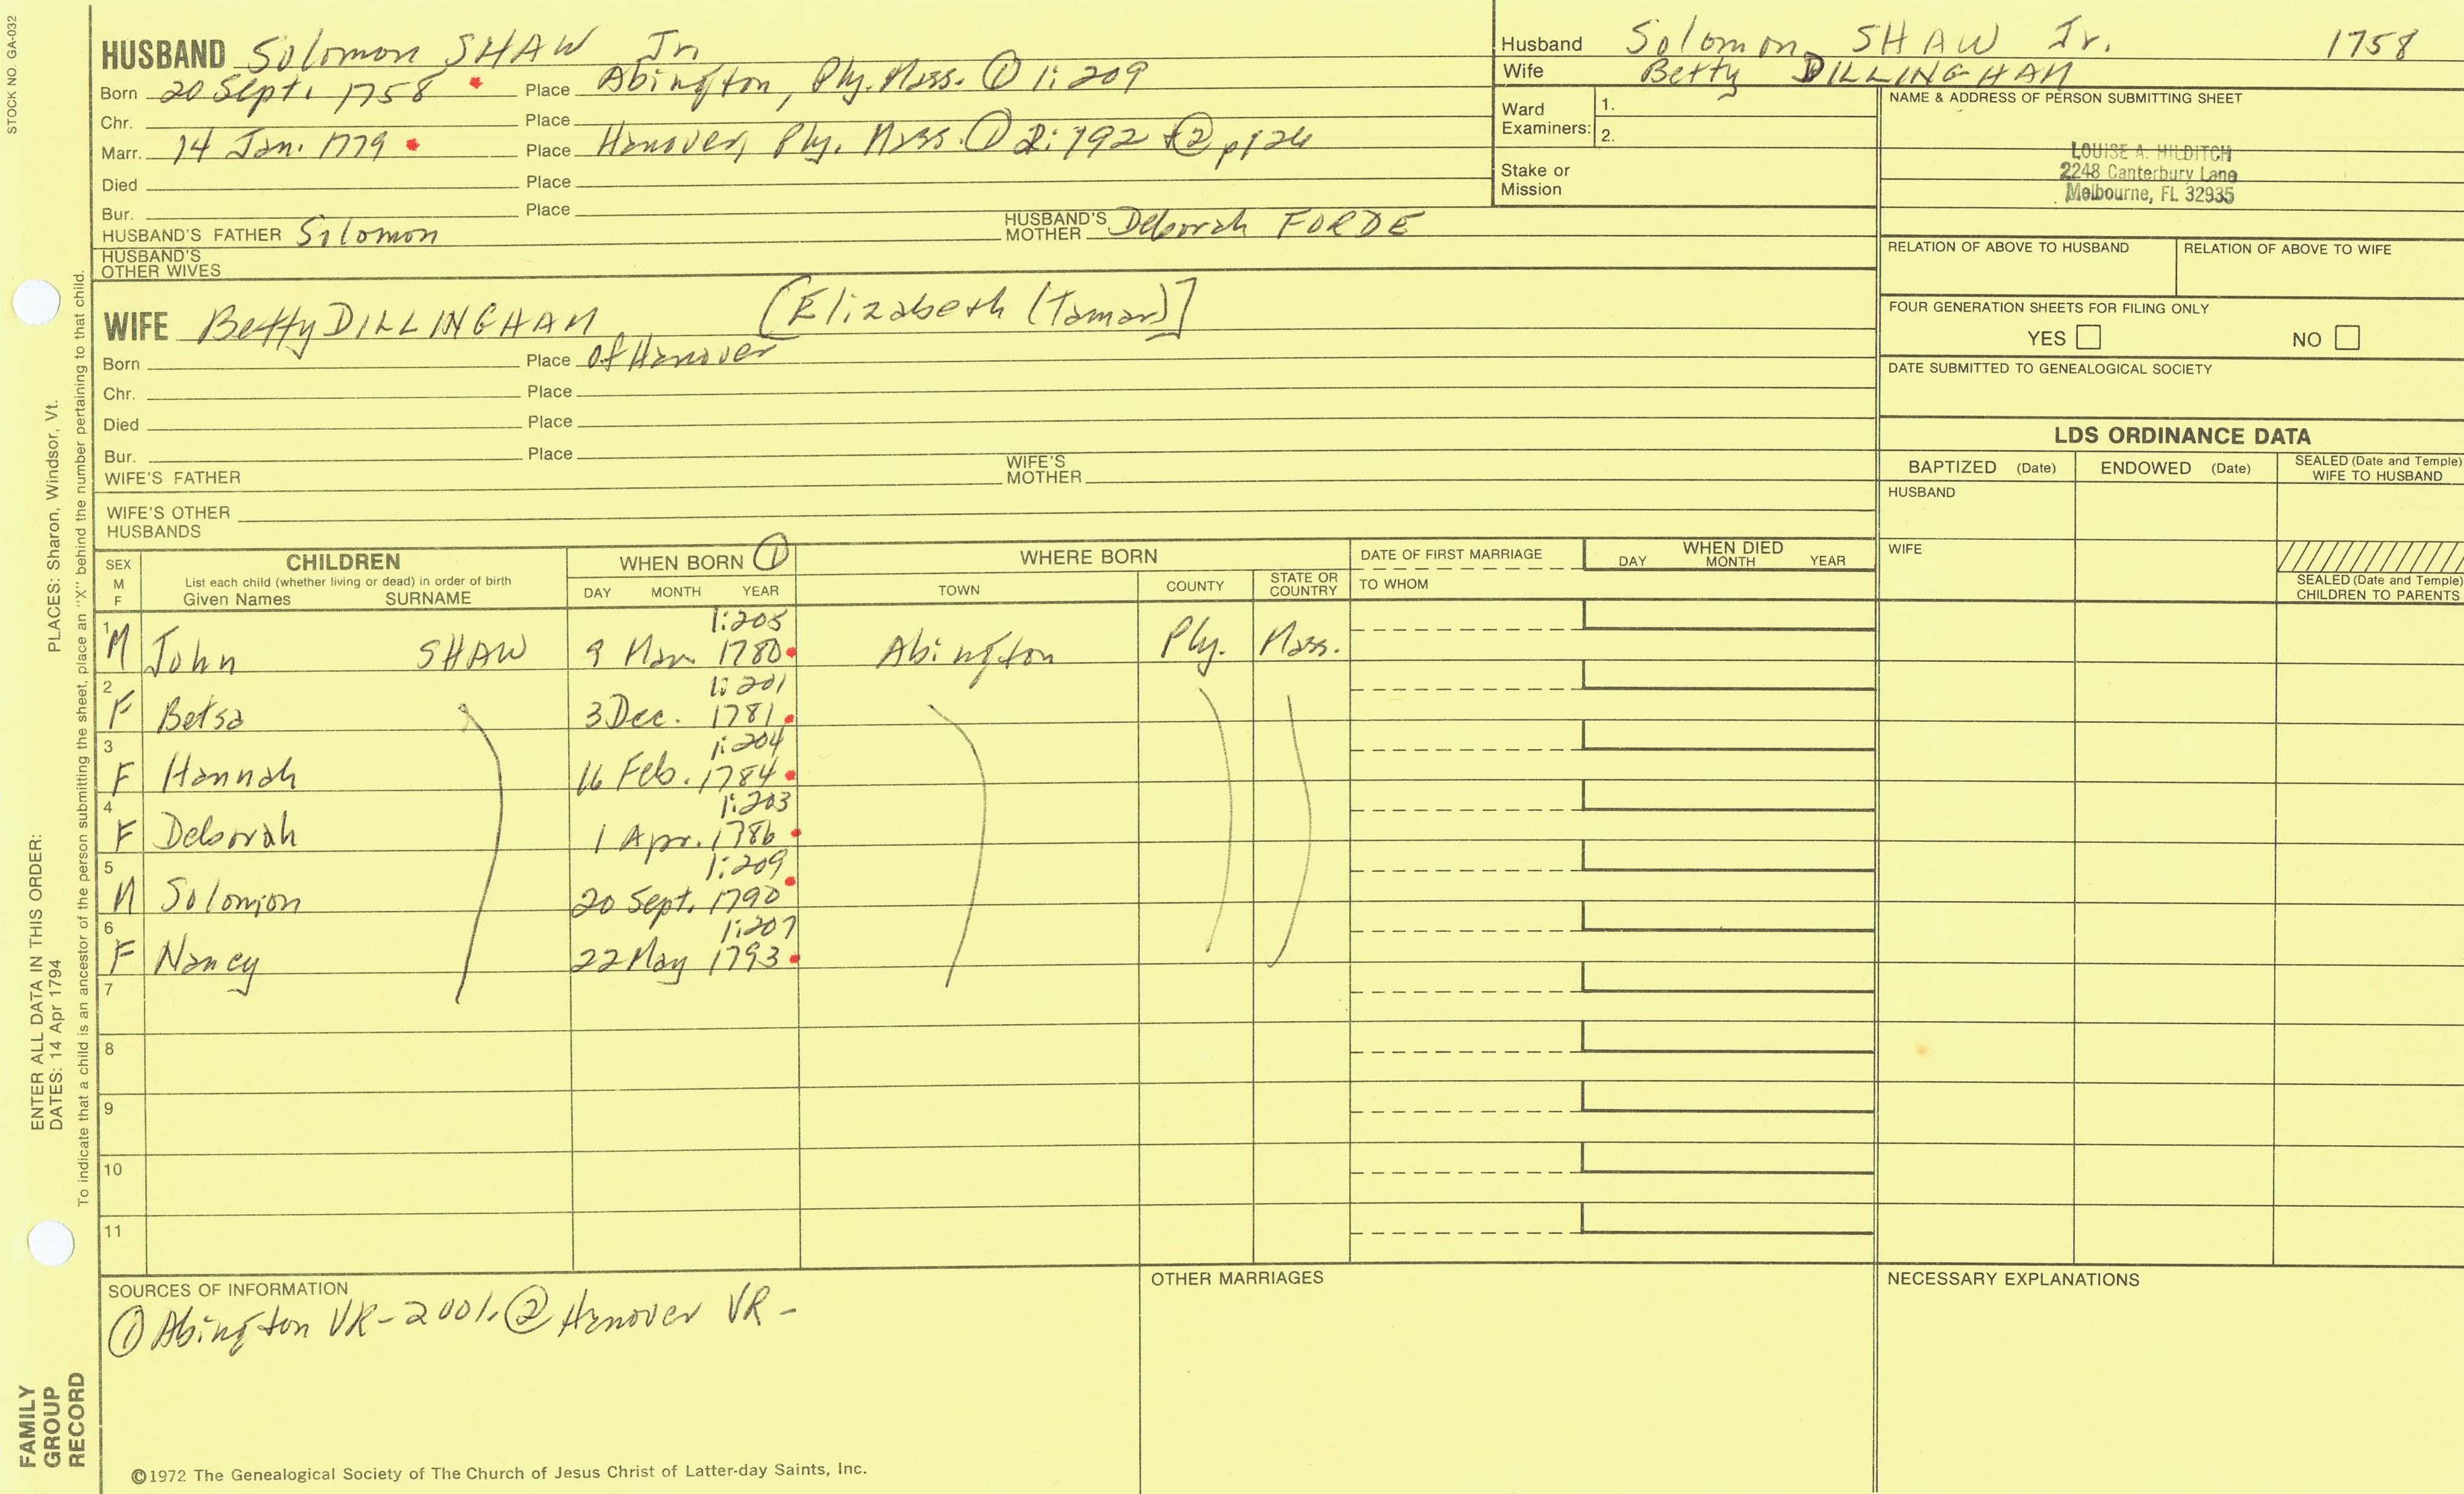 STOCK NO. GA-032
HUSBAND Solomon SHAW Jr.
Born 20 Sept. 1758 Place Abington, Ply. Mass. ① 1:209
Chr. Place
Marr. 14 Jan. 1779 Place Hanover, Ply. Mass. ① 2:192 + ② p126
Died Place
Bur. Place
HUSBAND'S FATHER Solomon HUSBAND'S MOTHER Deborah FORDE
HUSBAND'S OTHER WIVES
Husband Solomon SHAW Jr. 1758
Wife Betty DILLINGHAM
Ward Examiners: 1.
2.
Stake or Mission
NAME & ADDRESS OF PERSON SUBMITTING SHEET
LOUISE A. HILDITCH
2248 Canterbury Lane
Melbourne, FL 32935
RELATION OF ABOVE TO HUSBAND RELATION OF ABOVE TO WIFE
FOUR GENERATION SHEETS FOR FILING ONLY
YES NO
DATE SUBMITTED TO GENEALOGICAL SOCIETY
WIFE Betty DILLINGHAM [Elizabeth (Tamar)]
Born Place of Hanover
Chr. Place
Died Place
Bur. Place
WIFE'S FATHER WIFE'S MOTHER
WIFE'S OTHER HUSBANDS
LDS ORDINANCE DATA
BAPTIZED (Date) ENDOWED (Date) SEALED (Date and Temple) WIFE TO HUSBAND
HUSBAND
WIFE
SEALED (Date and Temple) CHILDREN TO PARENTS
SEX M F
CHILDREN
List each child (whether living or dead) in order of birth
Given Names SURNAME
WHEN BORN ①
DAY MONTH YEAR
WHERE BORN
TOWN COUNTY STATE OR COUNTRY
DATE OF FIRST MARRIAGE
TO WHOM
WHEN DIED
DAY MONTH YEAR
1:205
1 M John SHAW 9 Mar. 1780 Abington Ply. Mass.
1:201
2 F Betsa 3 Dec. 1781
1:204
3 F Hannah 16 Feb. 1784
1:203
4 F Deborah 1 Apr. 1786
1:209
5 M Solomon 20 Sept. 1790
1:207
6 F Nancy 22 May 1793
7
8
9
10
11
SOURCES OF INFORMATION
① Abington VR - 2 vols. ② Hanover VR -
OTHER MARRIAGES
NECESSARY EXPLANATIONS
©1972 The Genealogical Society of The Church of Jesus Christ of Latter-day Saints, Inc.
FAMILY GROUP RECORD
ENTER ALL DATA IN THIS ORDER:
DATES: 14 Apr 1794 PLACES: Sharon, Windsor, Vt.
To indicate that a child is an ancestor of the person submitting the sheet, place an "X" behind the number pertaining to that child.